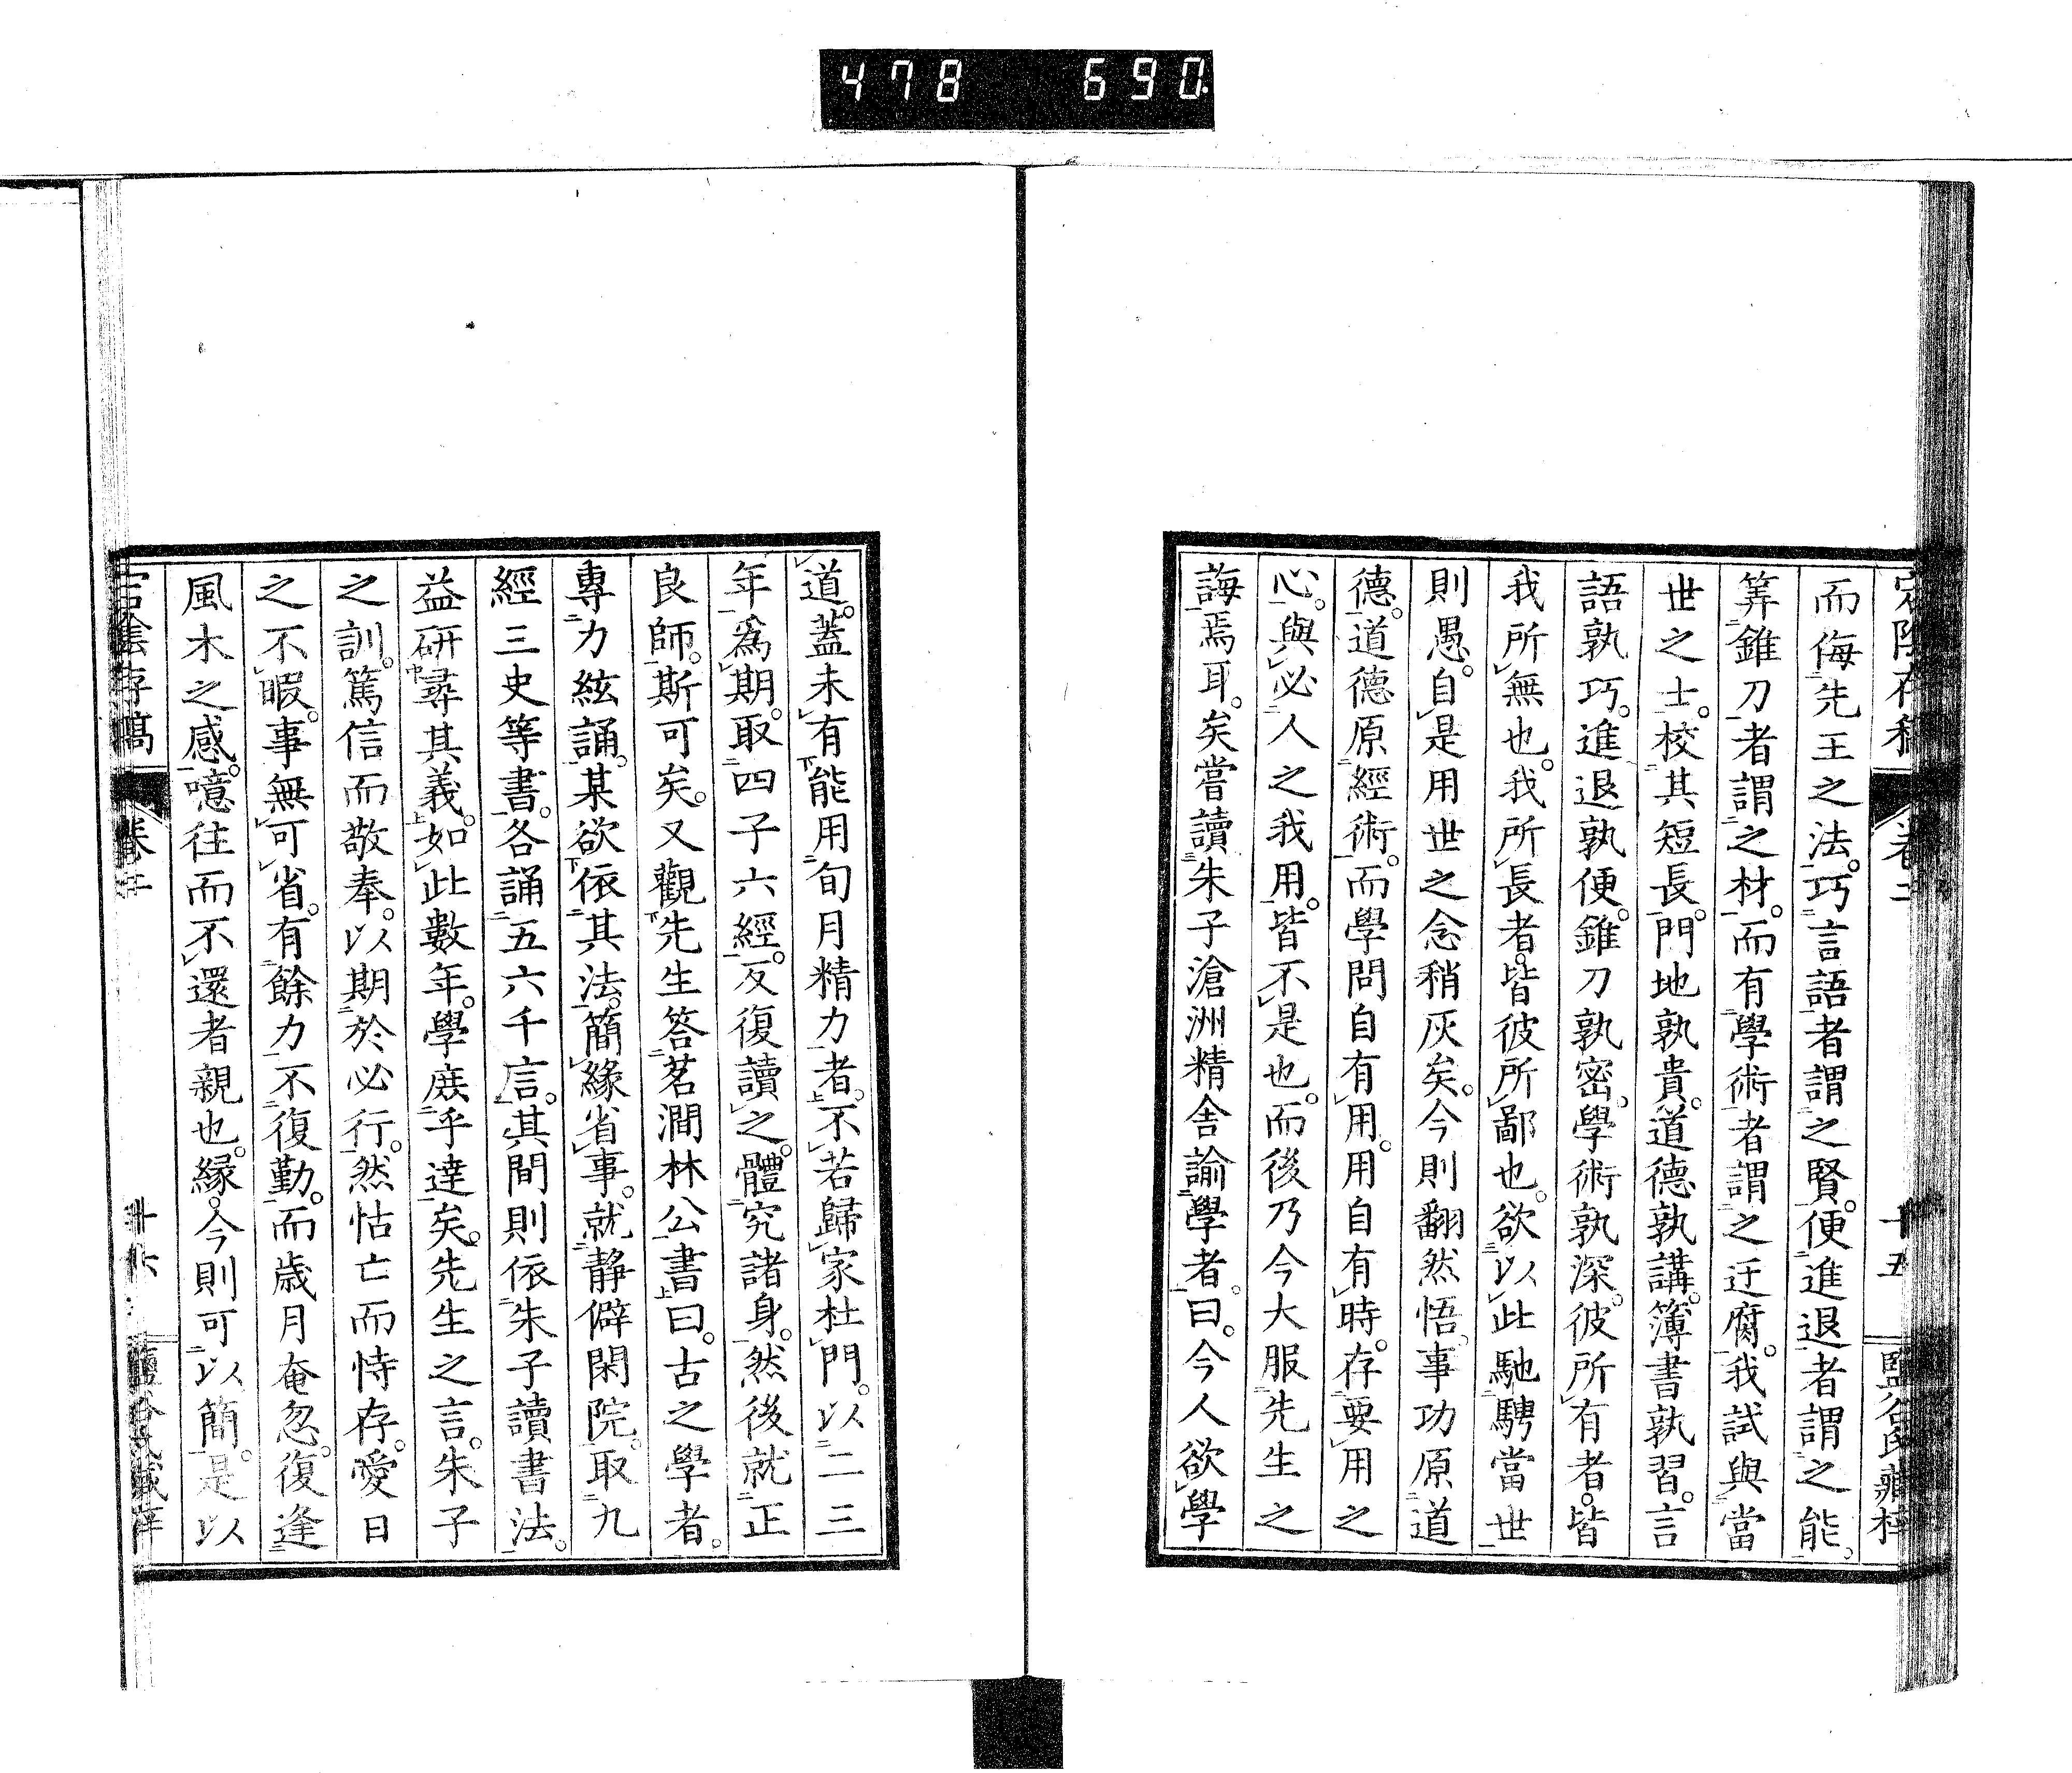 478 690
宕陰存稿 卷二 十五 鹽谷氏藏梓
而侮先王之法。巧言語者謂之賢。便進退者謂之能。
筭錐刀者謂之材。而有學術者謂之迂腐。我試與當
世之士。校其短長。門地孰貴。道德孰講。簿書孰習。言
語孰巧。進退孰便。錐刀孰密。學術孰深。彼所有者。皆
我所無也。我所長者。皆彼所鄙也。欲以此馳騁當世
則愚。自是用世之念稍灰矣。今則翻然悟。事功原道
德。道德原經術。而學問自有用。用自有時。存要用之
心。與必人之我用。皆不是也。而後乃今大服先生之
誨焉耳。矣嘗讀朱子滄洲精舍諭學者。曰。今人欲學
道。蓋未有能用旬月精力者。不若歸家杜門。以二三
年為期。取四子六經。反復讀之。體究諸身。然後就正
良師。斯可矣。又觀先生答茗澗林公書曰。古之學者。
專力絃誦。某欲依其法。簡緣省事。就靜僻閑院。取九
經三史等書。各誦五六千言。其間則依朱子讀書法。
益研尋其義。如此數年。學庶乎達矣。先生之言。朱子
之訓。篤信而敬奉。以期於必行。然怙亡而恃存。愛日
之不暇。事無可省。有餘力不復勤。而歲月奄忽。復逢
風木之感。噫往而不還者親也。緣。今則可以簡。是以
宕陰存稿 卷二 十六 鹽谷氏藏梓